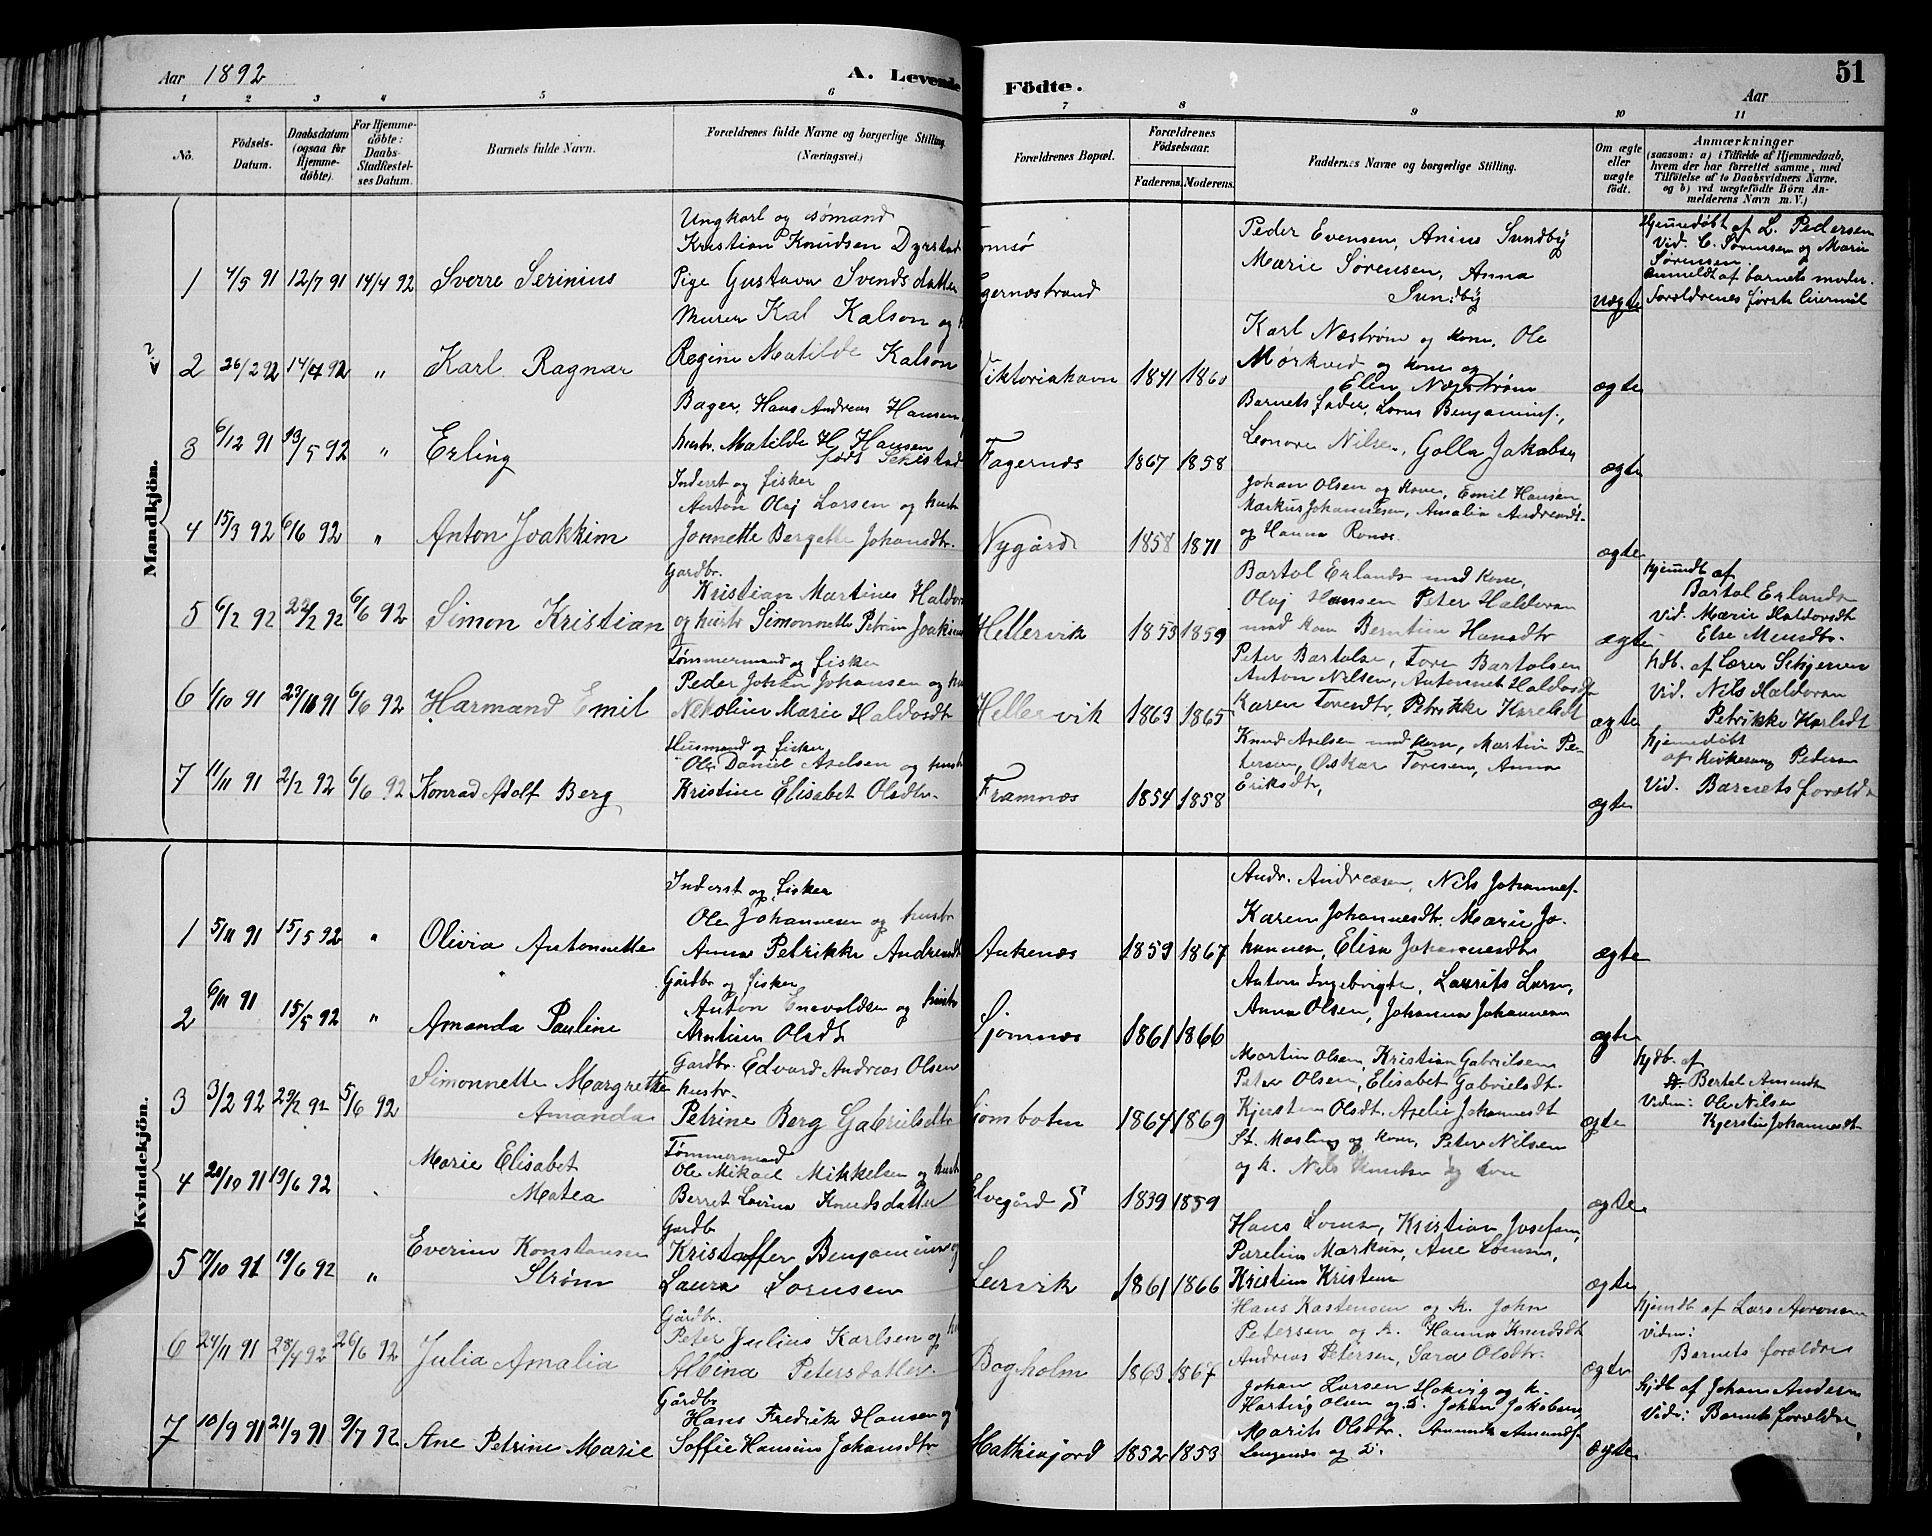 Aar 1892
A. Levende Födte.
51
Aar
1 2 3 4 5 6 7 8 9 10 11
No.
Födsels-Datum.
Daabsdatum (ogsaa for Hjemmedöbte).
For Hjemmedöbte: Daabs-Stadfæstelses Datum.
Barnets fulde Navn.
Forældrenes fulde Navne og borgerlige Stilling.
(Næringsvei.)
Forældrenes Bopæl.
Forældrenes Födselsaar.
Faderens. Moderens.
Faddernes Navne og borgerlige Stilling.
Om ægte eller uægte födt.
Anmærkninger
(saasom: a) i Tilfælde af Hjemmedaab, hvem der har forrettet samme, med Tilföielse af to Daabsvidners Navne, og b) ved uægtefödte Börn Anmelderens Navn m. V.)
Mandkjön.
Ungkarl og sømand
Kristian Knudsen Dyrstad
1 4/5 91 12/7 91 14/4 92 Sverre Serinius Pige Gustava Svendsdatter
Fagernæstrand
Peder Evensen, Anius Sundby
Marie Sørensen, Anna
Sundby
uægte
Hjemmedøbt af L. Pedersen
Vid. C. Sørensen og Marie
Sørensen.
Anmeldt af barnets moder.
Forældrenes første leiermål
Murer Karl Kalson og
2 26/2 92 14/4 92 " Karl Ragnar Regine Matilde Kalson
Viktoriahavn 1841 1860
Karl Næstrøm og kone, Ole
Mørkved og kone og
Elen Næstrøm
ægte
Bager, Hans Andreas Hansen
3 6/12 91 13/5 92 " Erling hustr. Matilde H. Hansen
Fagernæs 1867 1858
Barnets fader, Lorns Benjamins.,
Leonore Nilsen, Golla Jakobsen
ægte
Inderst og fisker
Anton Olaj Larsen og hustr
4 15/3 92 6/6 92 " Anton Joakkim Jonnette Bergette Johansdtr.
Nygård 1858 1871
Johan Olsen og Kone, Emil Hansen
Markus Johannesen, Amalia Andreasdt.
og Hanna Ronæs.
ægte
Gardbr.
Kristian Martines Haldor
5 6/2 92 22/2 92 6/6 92 Simon Kristian og hustr Simonnette Petrine Joakim
Hellervik 1853 1859
Bartol Erlands med Kone,
Olaj Hansen Peter Haldorsen
med kone Berntine Hansdtr
ægte
hjemdt af
Bartol Erlands
Vid. Marie Haldorsdt
Else Monsdtr.
Tømmermand og fisker
Peder Johan Johansen og
6 1/10 91 23/11 91 6/6 92 Harmand Emil Nekoline Marie Haldorsdt
Hellervik 1863 1865
Peter Bartolsen, Tore Bartolsen
Anton Nilsen, Antonnet Haldorsdt
Karen Toresdtr, Petrikke Karelsdt
ægte
hdb. af Lærer Schjerven
Vid. Nils Haldorsen
Petrikke Karlsdt
Husmand og fisker
Ole Daniel Axelsen og hustr
7 11/11 91 2/2 92 6/6 92 Konrad Adolf Berg Kristine Elisabet Olsdtr.
Framnæs 1854 1858
Knud Axelsen med kone, Martin Pe-
tersen, Oskar Toresen, Anna
Eriksdtr,
ægte
hjemmedøbt
af Kirkesang Pedersen
Vid. Barnets foreldre
Kvindekjön.
Inderst og fisker
Ole Johannesen og hustr
1 5/11 91 15/5 92 " Olivia Antonnette Anna Petrikke Andreasdt
Ankenæs 1859 1867
Andr. Andreasen, Nils Johannes.
Karen Johannesdtr. Marie Jo-
hannesen, Elisa Johannesdtr
ægte
Gårdbr og fisker
Anton Enevoldsen og hustr
2 6/11 91 15/5 92 " Amanda Pauline Arntine Olsdt
Sjomnæs 1861 1866
Anton Ingebrigts, Laurits Larsen,
Anna Olsen, Johanna Johannesen
ægte
Gardbr. Edvard Andreas Olsen
hustr.
3 3/2 92 29/2 92 5/6 92 Simonnette Margrethe Amanda Petrine Berg Gabrielsdtr
Sjombotn 1864 1869
Martin Olsen, Kristian Gabrielsen
Peter Olsen, Elisabet Gabrielsdt.
Kjersten Olsdt. Axelie Johannesdt
ægte
Hjdb. af
Bertel Amundt
Viden: Ole Nilsen
Kjerstin Johannesdt
Tømmermand
Ole Mikael Mikkelsen og hustr
4 20/10 91 19/6 92 Marie Elisabet Matea Berret Lovina Knudsdatter
Elvegård S 1839 1859
St. Mosling og kone, Peter Nilsen
og k. Nils Knudsen og kone
ægte
Gardbr
5 7/10 91 19/6 92 " Everine Konstanse Strøm Kristoffer Benjaminsen og
Laura Sorensen
Leirvik 1861 1866
Hans Lornsen, Kristian Josefsen,
Parelius Markusen, Ane Lornsen,
Kristian Kristensen
ægte
Gårdbr.
6 24/11 91 28/4 92 26/6 92 Julia Amalia Peter Julius Karlsen og
Albina Petersdatter.
Bogholm 1863 1867
Hans Kastensen og k. John
Petersen og k. Hanna Knudsdt
Andreas Petersen, Sara Olsdtr.
ægte
hjemdt af Lars Aronsen
viden:
Barnets forældre
Gårdbr
Hans Fredrik Hansen og
7 10/9 91 21/9 91 9/7 92 Ane Petrine Marie Soffie Hansine Johansdtr
Hattefjord 1852 1853
Johan Larsen Hakvig og k.
Hartvig Olsen og D. Johan Jakobsen,
Marits Olsdtr. Amunda Amunds.
Langenæs og D.
ægte
Hjdt af Johans Andersen
Vidr: Barnets forældre,